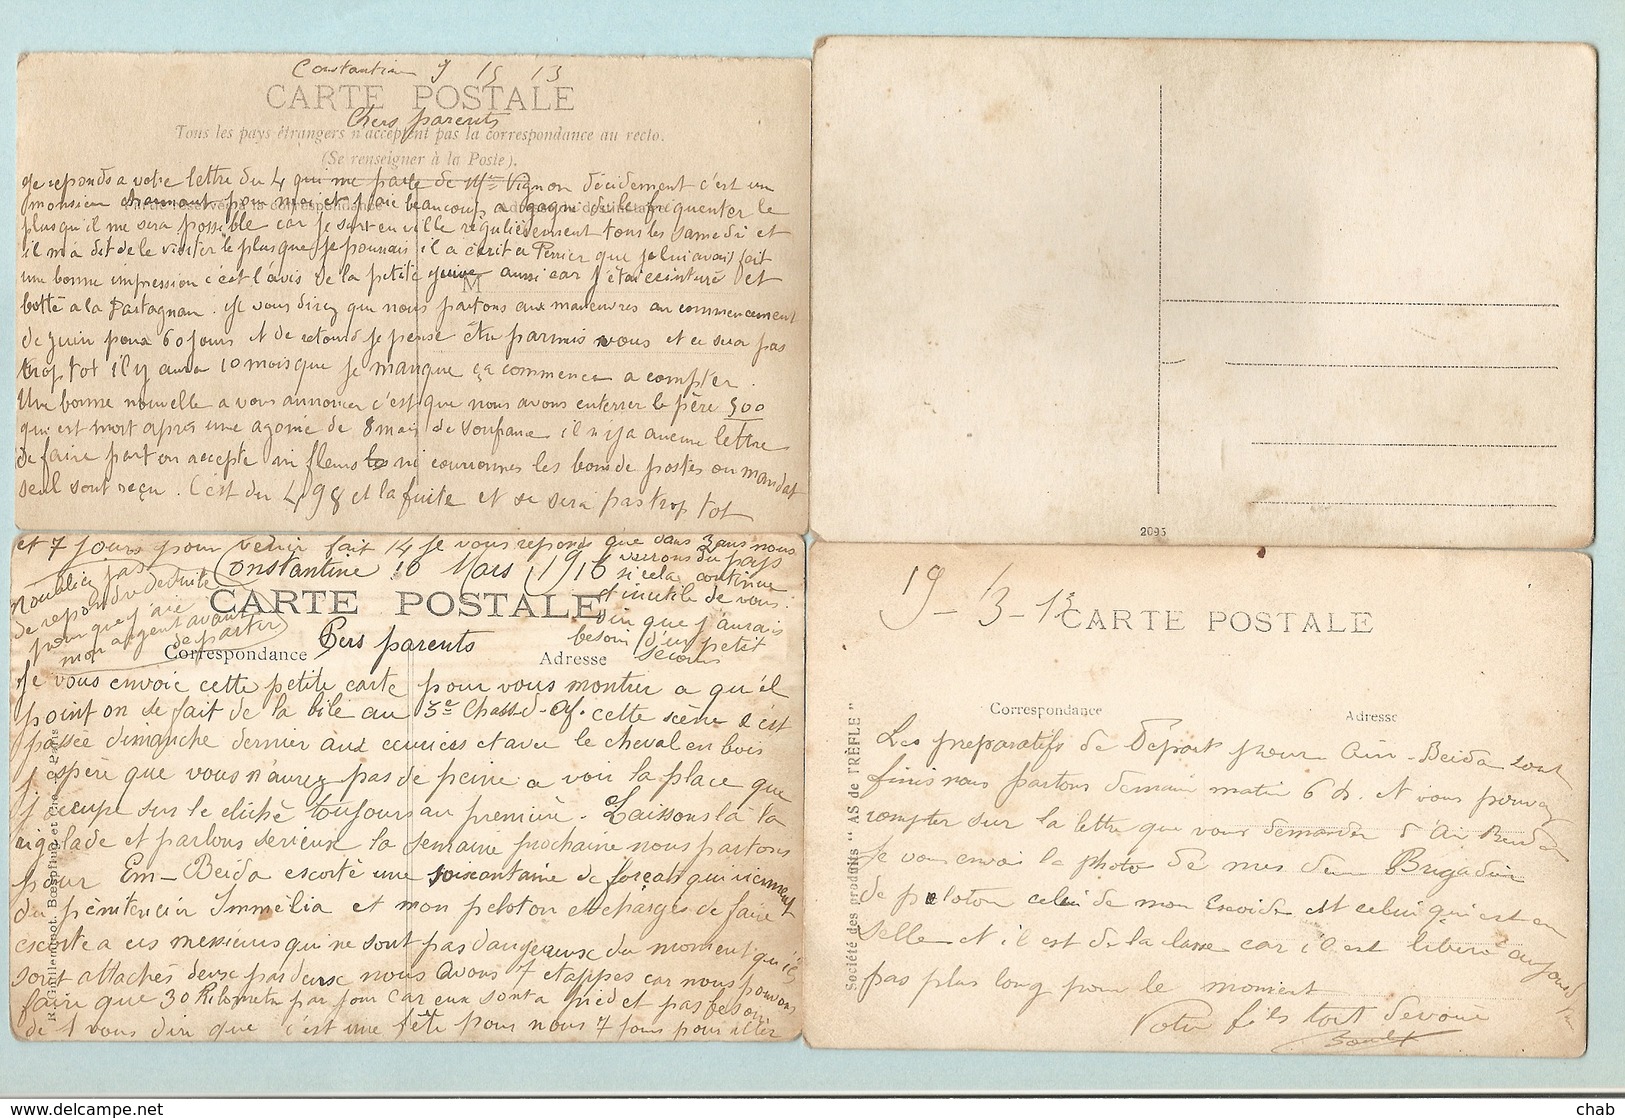 Constantine 9 15 13
CARTE POSTALE
Chers parents
Tous les pays étrangers n'acceptent pas la correspondance au recto.
(Se renseigner à la Poste).
Je reponds a votre lettre du 4 qui me parle de Mr Vignon décidement c'est un
monsieur charmant pour moi et j'ai beaucoup a gagné de le frequenter le
plus qu'il me sera possible car je sort en ville régulièrement tous les samedi et
il m'a dit de le visiter le plus que je pouvais il a écrit a Perrier que je lui avais fait
une bonne impression c'est l'avis de la petite aussi car j'étai ceinturé et
botté a la Dartagnan. Je vous direz que nous partons aux maneuvres au commencement
de juin pour 60 jours et de retour je pense être parmis vous et ce sera pas
trop tot il y aura 10 mois que je manque ça commence a compter.
Une bonne nouvelle a vous annoncer c'est que nous avons enterrer le père 500
qui est mort apres une agonie de 8 mois de soufrance il n'y a aucune lettre
de faire part on accepte ni fleurs ni couronnes les bons de postes ou mandat
seul sont reçu. C'est du 498 et la fuite et se sera pas trop tot
M
et 7 jours pour venir fait 14 je vous reponds que dans 3 ans nous
verrons du pays
si cela continue
et inutile de vous
dire que j'aurais
besoin d'un petit
secours
N'oubliez pas
de repondre de suite
pour que j'aie
mon argent avant
de partir
Constantine 10 Mars 1916
CARTE POSTALE
Correspondance
Chers parents
Adresse
Je vous envoie cette petite carte pour vous montrer a qu'el
point on se fait de la bile au 3e Chass-d-Af. cette scène s'est
passée dimanche dernier aux ecuries et avec le cheval en bois
j'espère que vous n'aurez pas de peine a voir la place que
j'occupe sur le cliché toujours au premièr. Laissons là la
rigolade et parlons serieux la semaine prochaine nous partons
pour Em-Beida escorté une soixantaine de forçats qui viennent
du pénitencier et mon peloton et chargés de faire
escorte a ces messieurs qui ne sont pas dangereux du moment qu'ils
sont attachés deux par deux nous avons 7 etappes car nous pouvons
faire que 30 Kilometr par jour car eux sont a pied et pas besoin
de vous dire que c'est une fête pour nous 7 jours pour aller
2095
19-3-13
CARTE POSTALE
Correspondance
Adresse
Société des produits "AS de TRÈFLE"
Les preparatifs de Départ pour Aïn-Beida sont
finis nous partons demain matin 6 h. et vous pouvez
compter sur la lettre que vous demander d'Aïn Beida
Je vous envoi la photo de mes deux Brigadier
de peloton celui de mon Escouade et celui qui est en
selle et il est de la classe car il est liberé aujourd'hui
pas plus long pour le moment
Votre fils tout dévoué
chab
www.delcampe.net